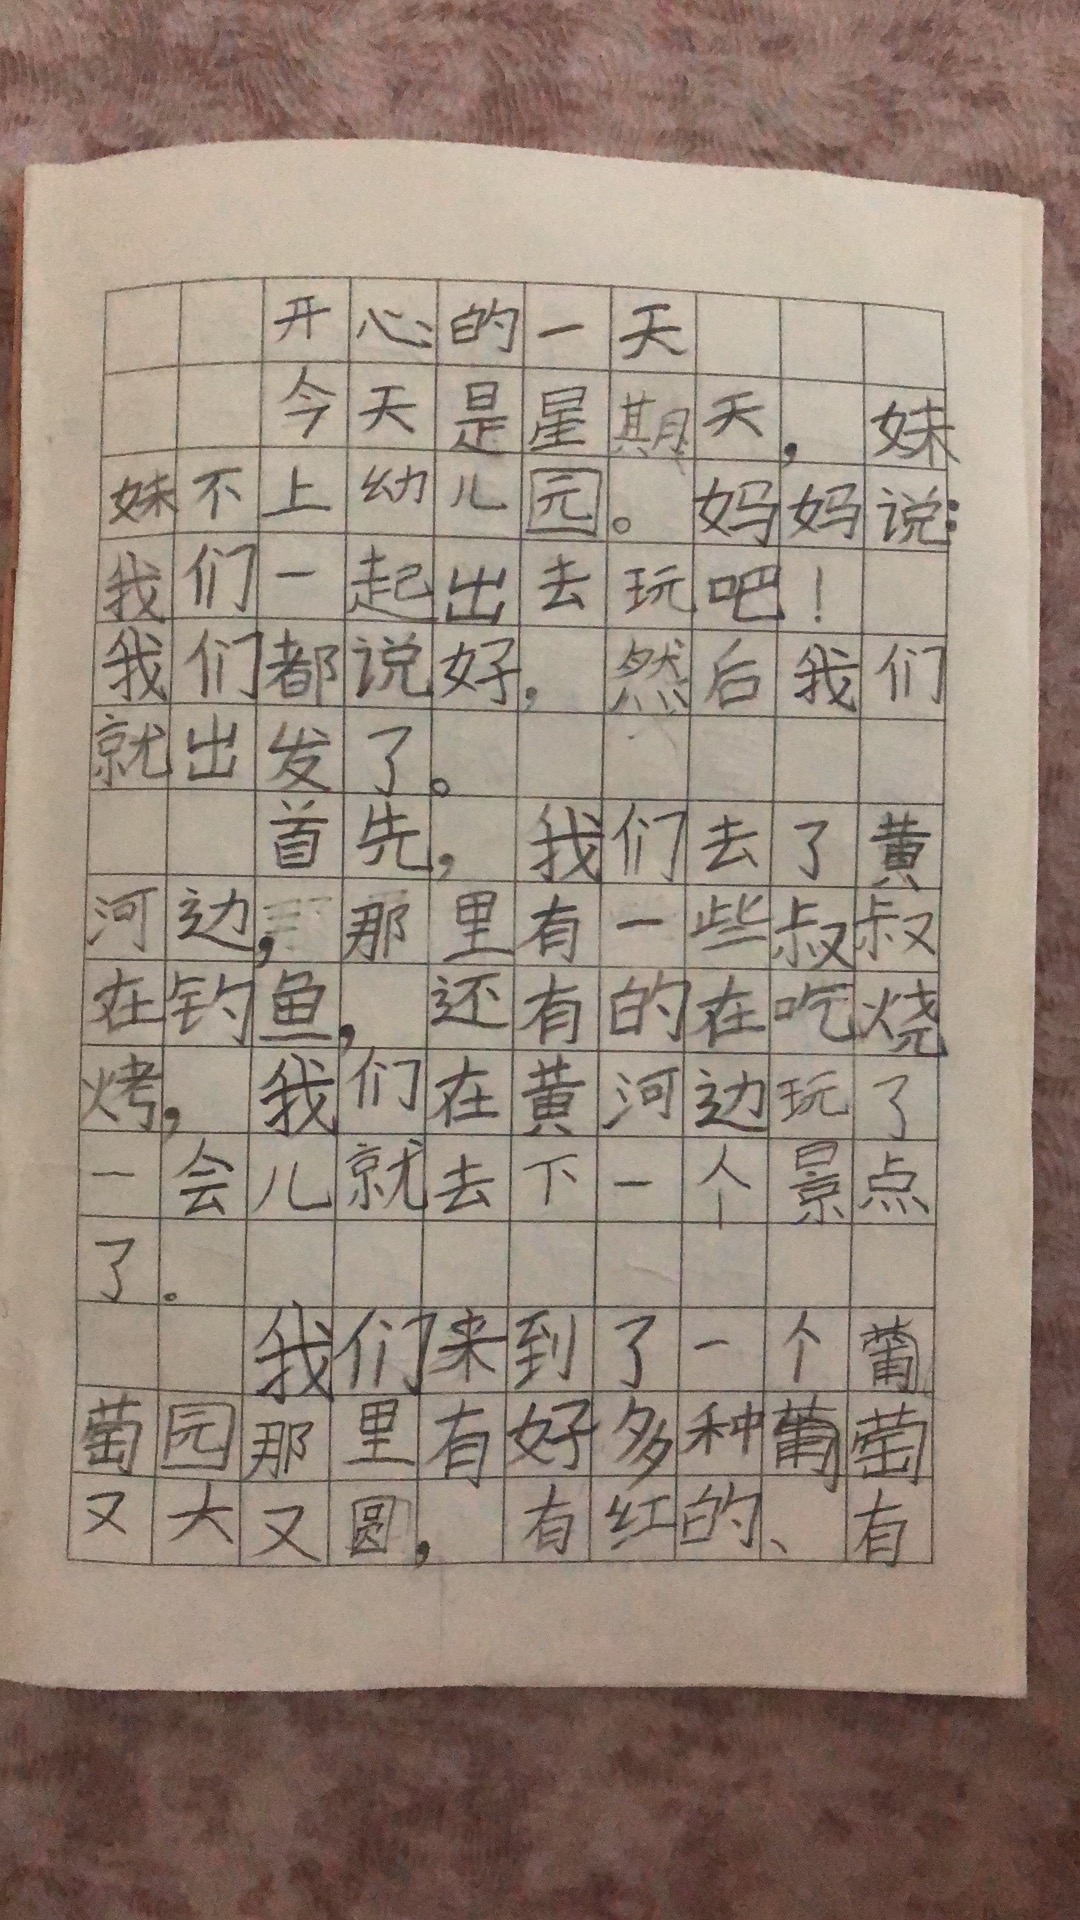 开心的一天
今天是星期天，妹
妹不上幼儿园。妈妈说：
我们一起出去玩吧！
我们都说好，然后我们
就出发了。
首先，我们去了黄
河边，那里有一些叔叔
在钓鱼，还有的在吃烧
烤，我们在黄河边玩了
一会儿就去下一个景点
了。
我们来到了一个葡
萄园那里有好多种葡萄
又大又圆，有红的、有